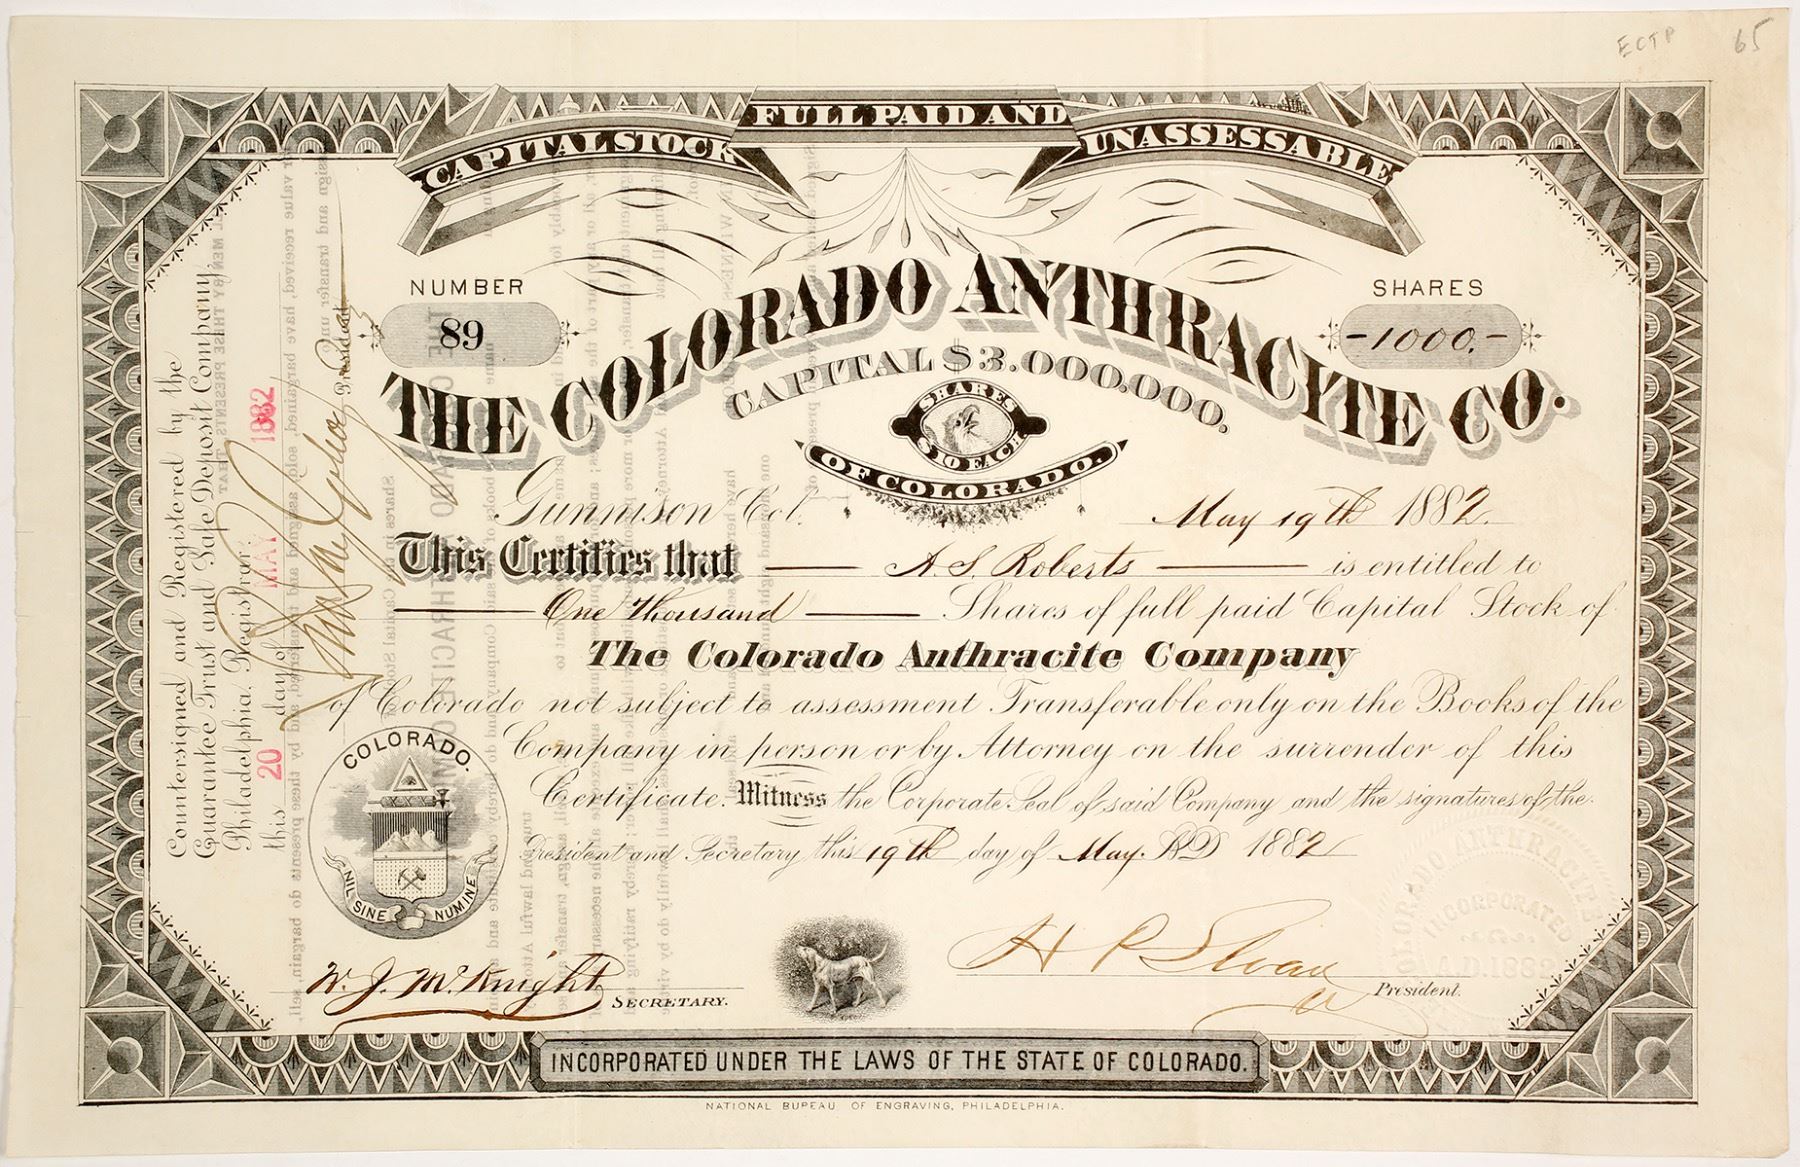 ECTP 65
CAPITAL STOCK FULL PAID AND UNASSESSABLE
NUMBER
89
SHARES
-1000.-
THE COLORADO ANTHRACITE CO.
CAPITAL $3.000.000.
SHARES
$10 EACH
OF COLORADO.
Gunnison Col. May 19th 1882.
This Certifies that A. S. Roberts is entitled to
One Thousand Shares of full paid Capital Stock of
The Colorado Anthracite Company
of Colorado not subject to assessment Transferable only on the Books of the
Company in person or by Attorney on the surrender of this
Certificate. Witness the Corporate Seal of said Company and the signatures of the
President and Secretary this 19th day of May. AD 1882
COLORADO.
NIL SINE NUMINE
W. J. McKnight. SECRETARY.
H P Sloan President.
COLORADO ANTHRACITE
INCORPORATED
A.D. 1882
INCORPORATED UNDER THE LAWS OF THE STATE OF COLORADO.
NATIONAL BUREAU OF ENGRAVING, PHILADELPHIA.
Countersigned and Registered by the
Guarantee Trust and Safe Deposit Company,
Philadelphia. Registrar.
this 20 day of MAY 1882
President